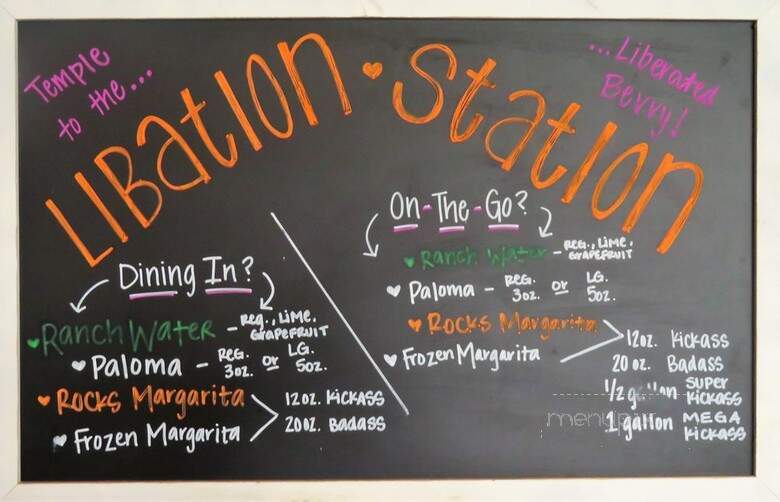 Temple
to the...
LIBATION • STATION
...Liberated
Bevvy!
Dining In?
Ranch Water - Reg., Lime,
Grapefruit
Paloma - Reg. or LG.
3oz. 5oz.
Rocks Margarita
Frozen Margarita
12oz. Kickass
20oz. Badass
On-The-Go?
Ranch Water - Reg., Lime,
Grapefruit
Paloma - Reg. or LG.
3oz. 5oz.
Rocks Margarita
Frozen Margarita
12oz. Kickass
20oz. Badass
1/2 gallon Super Kickass
1 gallon Mega Kickass